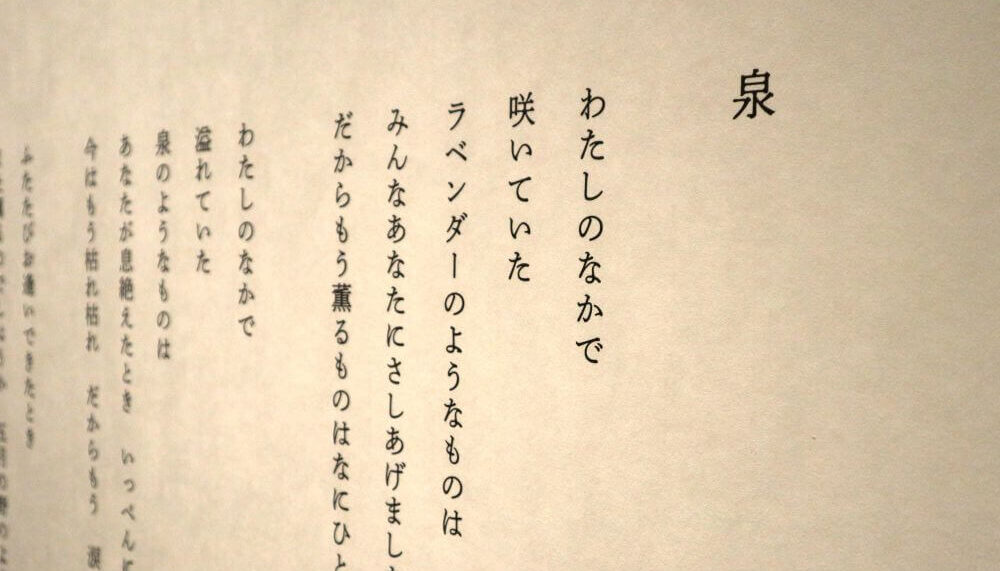 泉
わたしのなかで
咲いていた
ラベンダーのようなものは
みんなあなたにさしあげまし
だからもう薫るものはなにひと
わたしのなかで
溢れていた
泉のようなものは
あなたが息絶えたとき　いっぺんに
今はもう枯れ枯れ　だからもう　涙
ふたたびお逢いできたとき